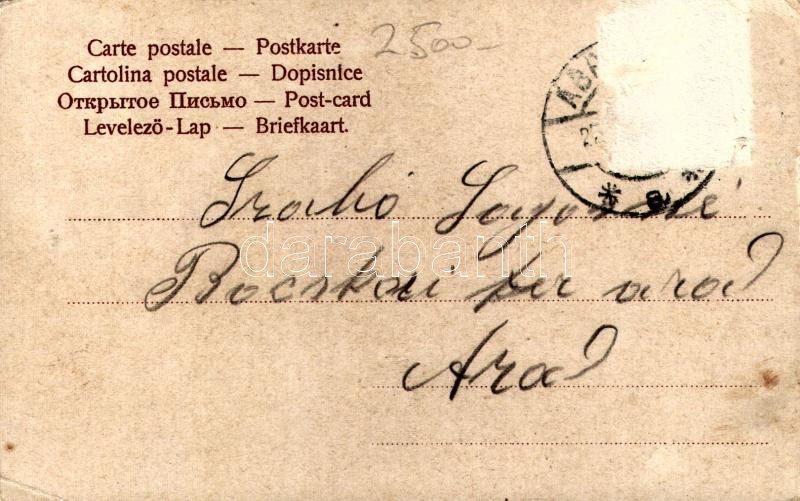 Carte postale — Postkarte
Cartolina postale — Dopisnice
Открытое Письмо — Post-card
Levelező-Lap — Briefkaart.
2500-
Szabó Lajosné
Bocskai ter arad
Arad
darabanth